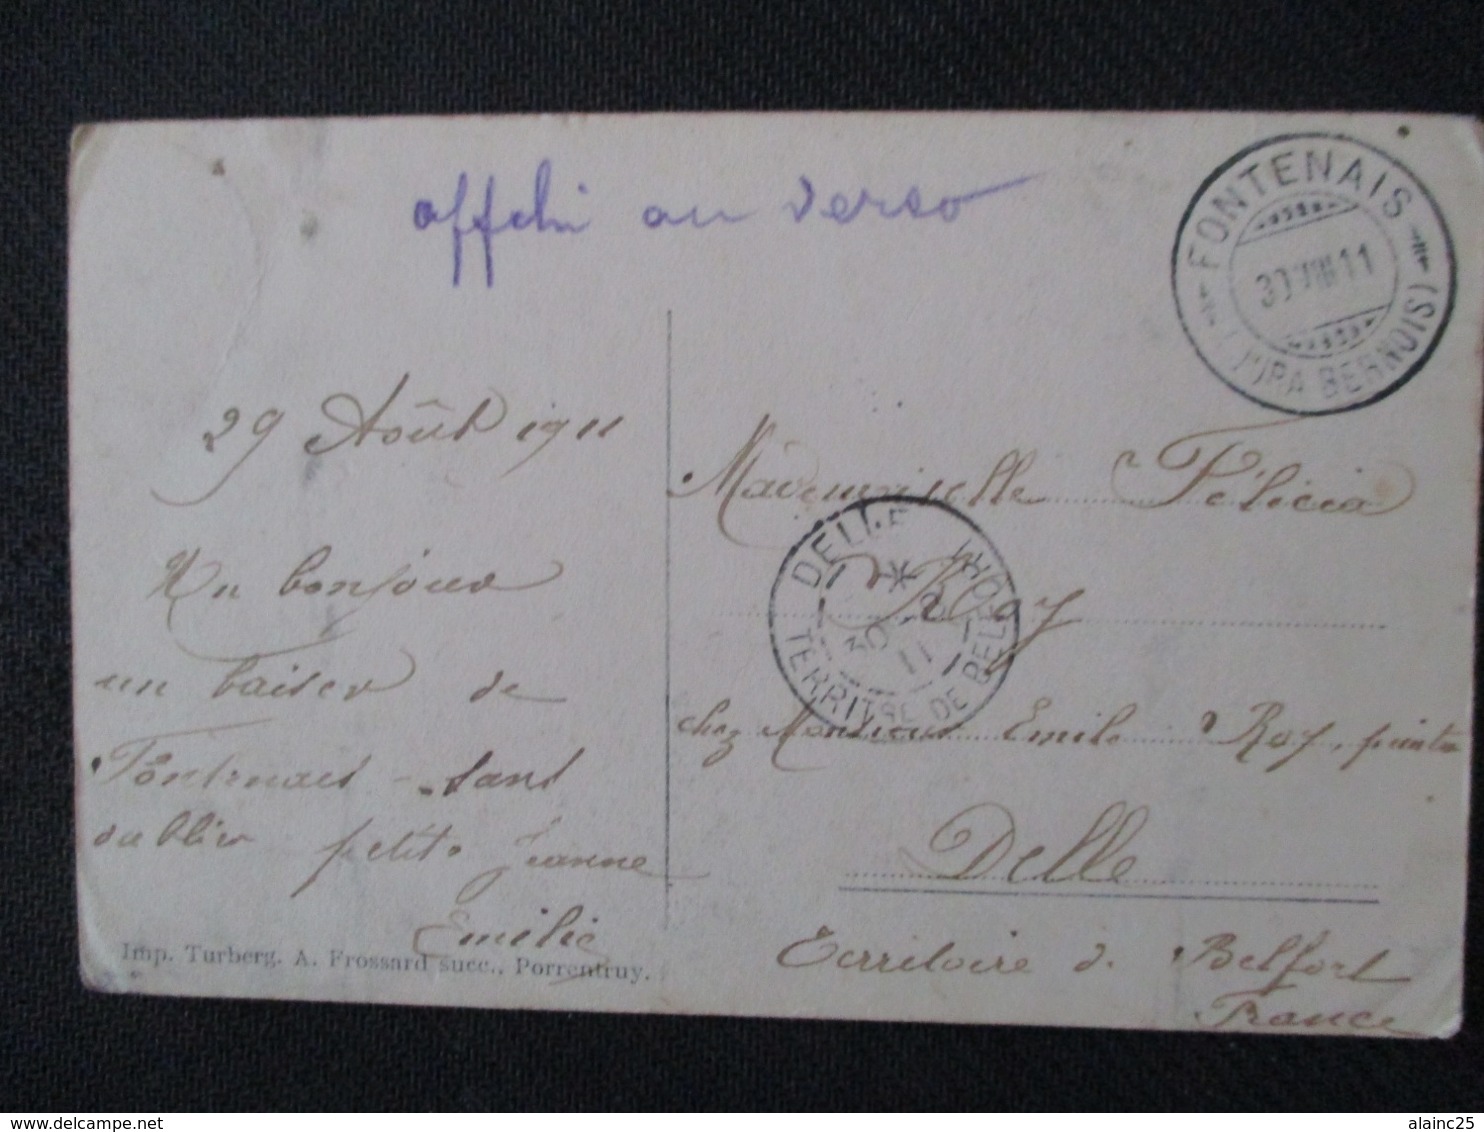 affchi au verso
FONTENAIS
30 VIII 11
(JURA BERNOIS)
29 Août 1911
Un bonjour
un baiser de
Fontenais - sans
oublier petite Jeanne
Emilie
Imp. Turberg. A. Frossard succ., Porrentruy.
Mademoiselle Félicia
Roy
chez Monsieur Emile Roy, peintre
Delle
Territoire d. Belfort
France
DELLE
30
11
TERRITRE DE BELFORT
delcampe.net
alainc25